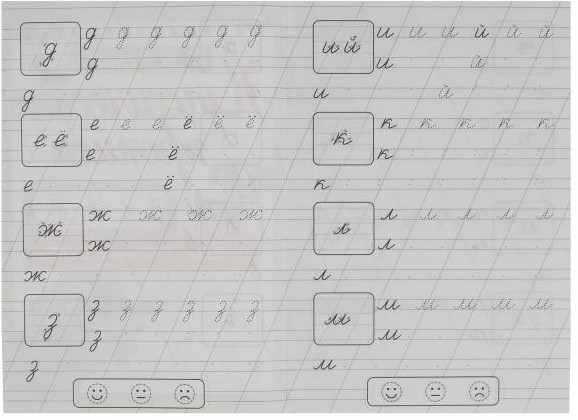 д д д д д д д
д
д
е ё е е е ё ё ё
е ё
е ё
ж ж ж ж ж
ж
ж
з з з з з з з
з
з
и й и и и й й й
и й
и й
к к к к к к
к
к
л л л л л л
л
л
м м м м м м
м
м